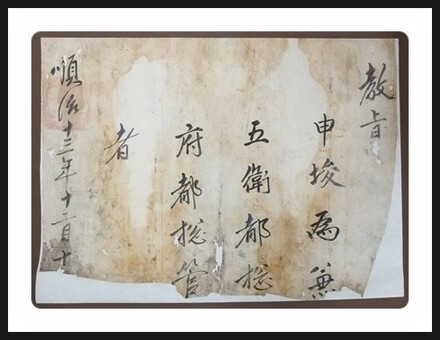 教旨
申埈爲兼
五衛都摠
府都摠管
者
順治十三年十二月十